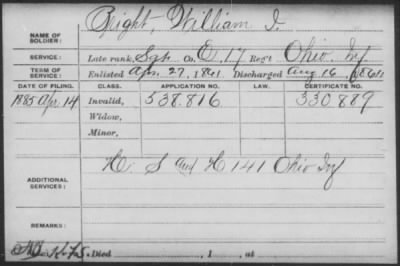 Bright, William I.
NAME OF SOLDIER:
SERVICE: Late rank, Sgt Co. D, 17 Reg't Ohio Inf
TERM OF SERVICE: Enlisted Apr. 27, 1861 Discharged Aug 16, 1861
DATE OF FILING. CLASS. APPLICATION NO. LAW. CERTIFICATE NO.
1885 Apr 14 Invalid, 538.816 330 889
Widow,
Minor,
ADDITIONAL SERVICES: S and H 141 Ohio Inf
REMARKS:
Died , 1 , at